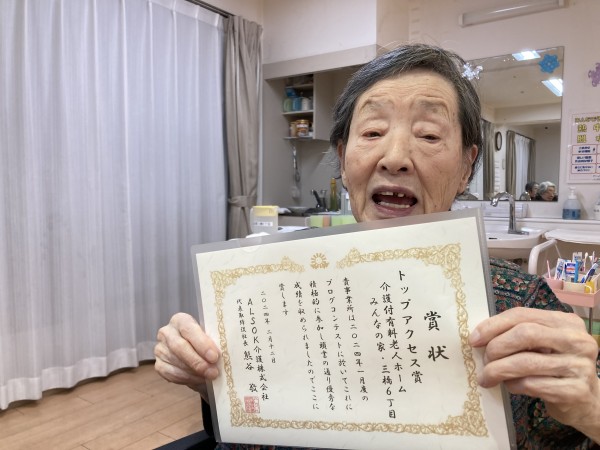 賞状
トップアクセス賞
介護付有料老人ホーム
みんなの家・三橋6丁目
貴事業所は二〇二四年一月度の
ブログコンテストに於いてこれに
積極的に参加し頭書の通り優秀な
成績を収められましたのでここに
賞します
二〇二四年二月十二日
ALSOK介護株式会社
代表取締役社長 熊谷 敬